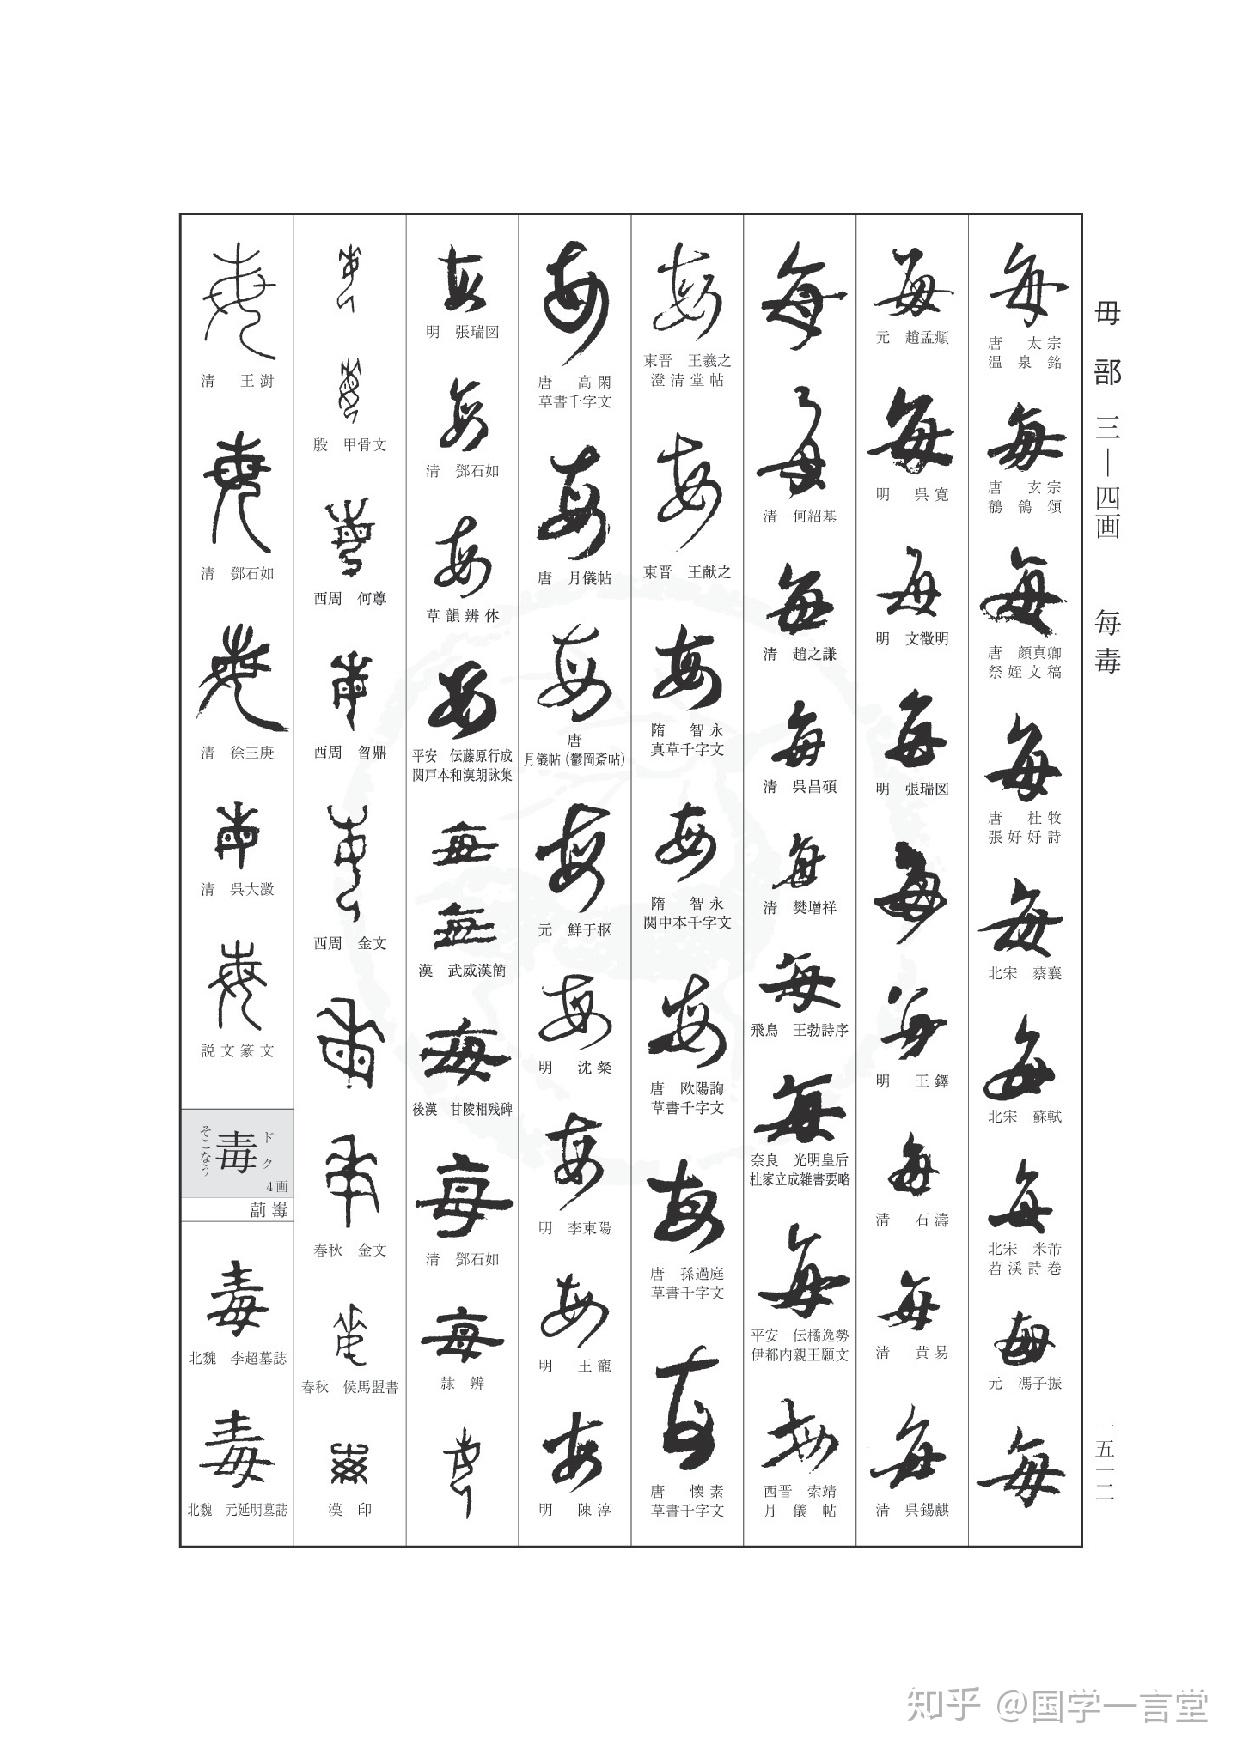 毋部
三―四画
毎毒
五一二
唐 太宗
温泉銘
唐 玄宗
鶺鴒頌
唐 顔真卿
祭姪文稿
唐 杜牧
張好好詩
北宋 蔡襄
北宋 蘇軾
北宋 米芾
苕渓詩巻
元 馮子振
元 趙孟頫
明 呉寛
明 文徴明
明 張瑞図
明 王鐸
清 石濤
清 黄易
清 呉錫麒
清 何紹基
清 趙之謙
清 呉昌碩
清 樊増祥
飛鳥 王勃詩序
奈良 光明皇后
杜家立成雑書要略
平安 伝橘逸勢
伊都内親王願文
西晋 索靖
月儀帖
東晋 王羲之
澄清堂帖
東晋 王献之
隋 智永
真草千字文
隋 智永
関中本千字文
唐 欧陽詢
草書千字文
唐 孫過庭
草書千字文
唐 懐素
草書千字文
唐 高閑
草書千字文
唐 月儀帖
唐
月儀帖(鬱岡斎帖)
元 鮮于枢
明 沈粲
明 李東陽
明 王寵
明 陳淳
明 張瑞図
清 鄧石如
草韻辨体
平安 伝藤原行成
関戸本和漢朗詠集
漢 武威漢簡
後漢 甘陵相残碑
清 鄧石如
隷辨
殷 甲骨文
西周 何尊
西周 曶鼎
西周 金文
春秋 金文
春秋 侯馬盟書
漢 印
清 王澍
清 鄧石如
清 徐三庚
清 呉大澂
説文篆文
毒
ドク
そこなう
4画
北魏 李超墓誌
北魏 元延明墓誌
知乎 @国学一言堂